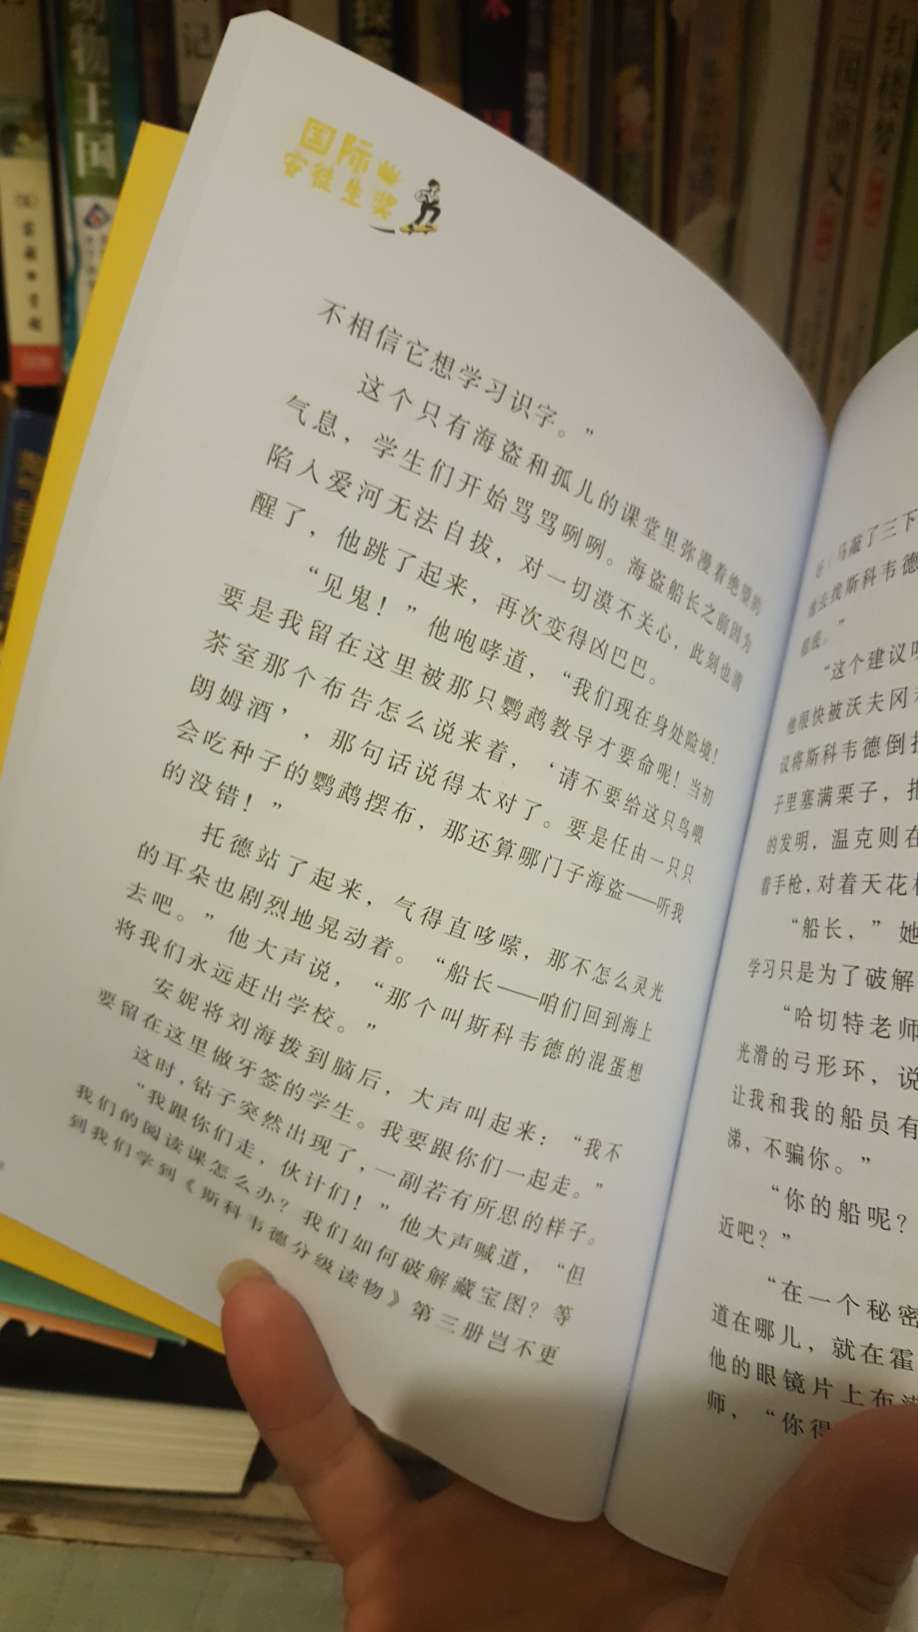 动物王国
记
三国演义
红楼梦
国际
安徒生奖
不相信它想学习识字。”
这个只有海盗和孤儿的课堂里弥漫着绝望的
气息，学生们开始骂骂咧咧。海盗船长之前因为
陷入爱河无法自拔，对一切漠不关心，此刻也清
醒了，他跳了起来，再次变得凶巴巴。
“见鬼！”他咆哮道，“我们现在身处险境！
要是我留在这里被那只鹦鹉教导才要命呢！当初
茶室那个布告怎么说来着，‘请不要给这只鸟喂
朗姆酒’，那句话说得太对了。要是任由一只只
会吃种子的鹦鹉摆布，那还算哪门子海盗——听我
的没错！”
托德站了起来，气得直哆嗦，那不怎么灵光
的耳朵也剧烈地晃动着。“船长——咱们回到海上
去吧。”他大声说，“那个叫斯科韦德的混蛋想
将我们永远赶出学校。”
安妮将刘海拨到脑后，大声叫起来：“我不
要留在这里做牙签的学生。我要跟你们一起走。”
这时，钻子突然出现了，一副若有所思的样子。
“我跟你们走，伙计们！”他大声喊道，“但
我们的阅读课怎么办？我们如何破解藏宝图？等
到我们学到《斯科韦德分级读物》第三册岂不更
马敲了三下
去找斯科韦德
“这个建议
他很快被沃夫冈
议将斯科韦德倒
子里塞满栗子，
的发明，温克则在
着手枪，对着天花
“船长，”她
学习只是为了破解
“哈切特老师
光滑的弓形环，说
让我和我的船员有
涕，不骗你。”
“你的船呢？
近吧？”
“在一个秘密
道在哪儿，就在霍
他的眼镜片上布
师，“你得